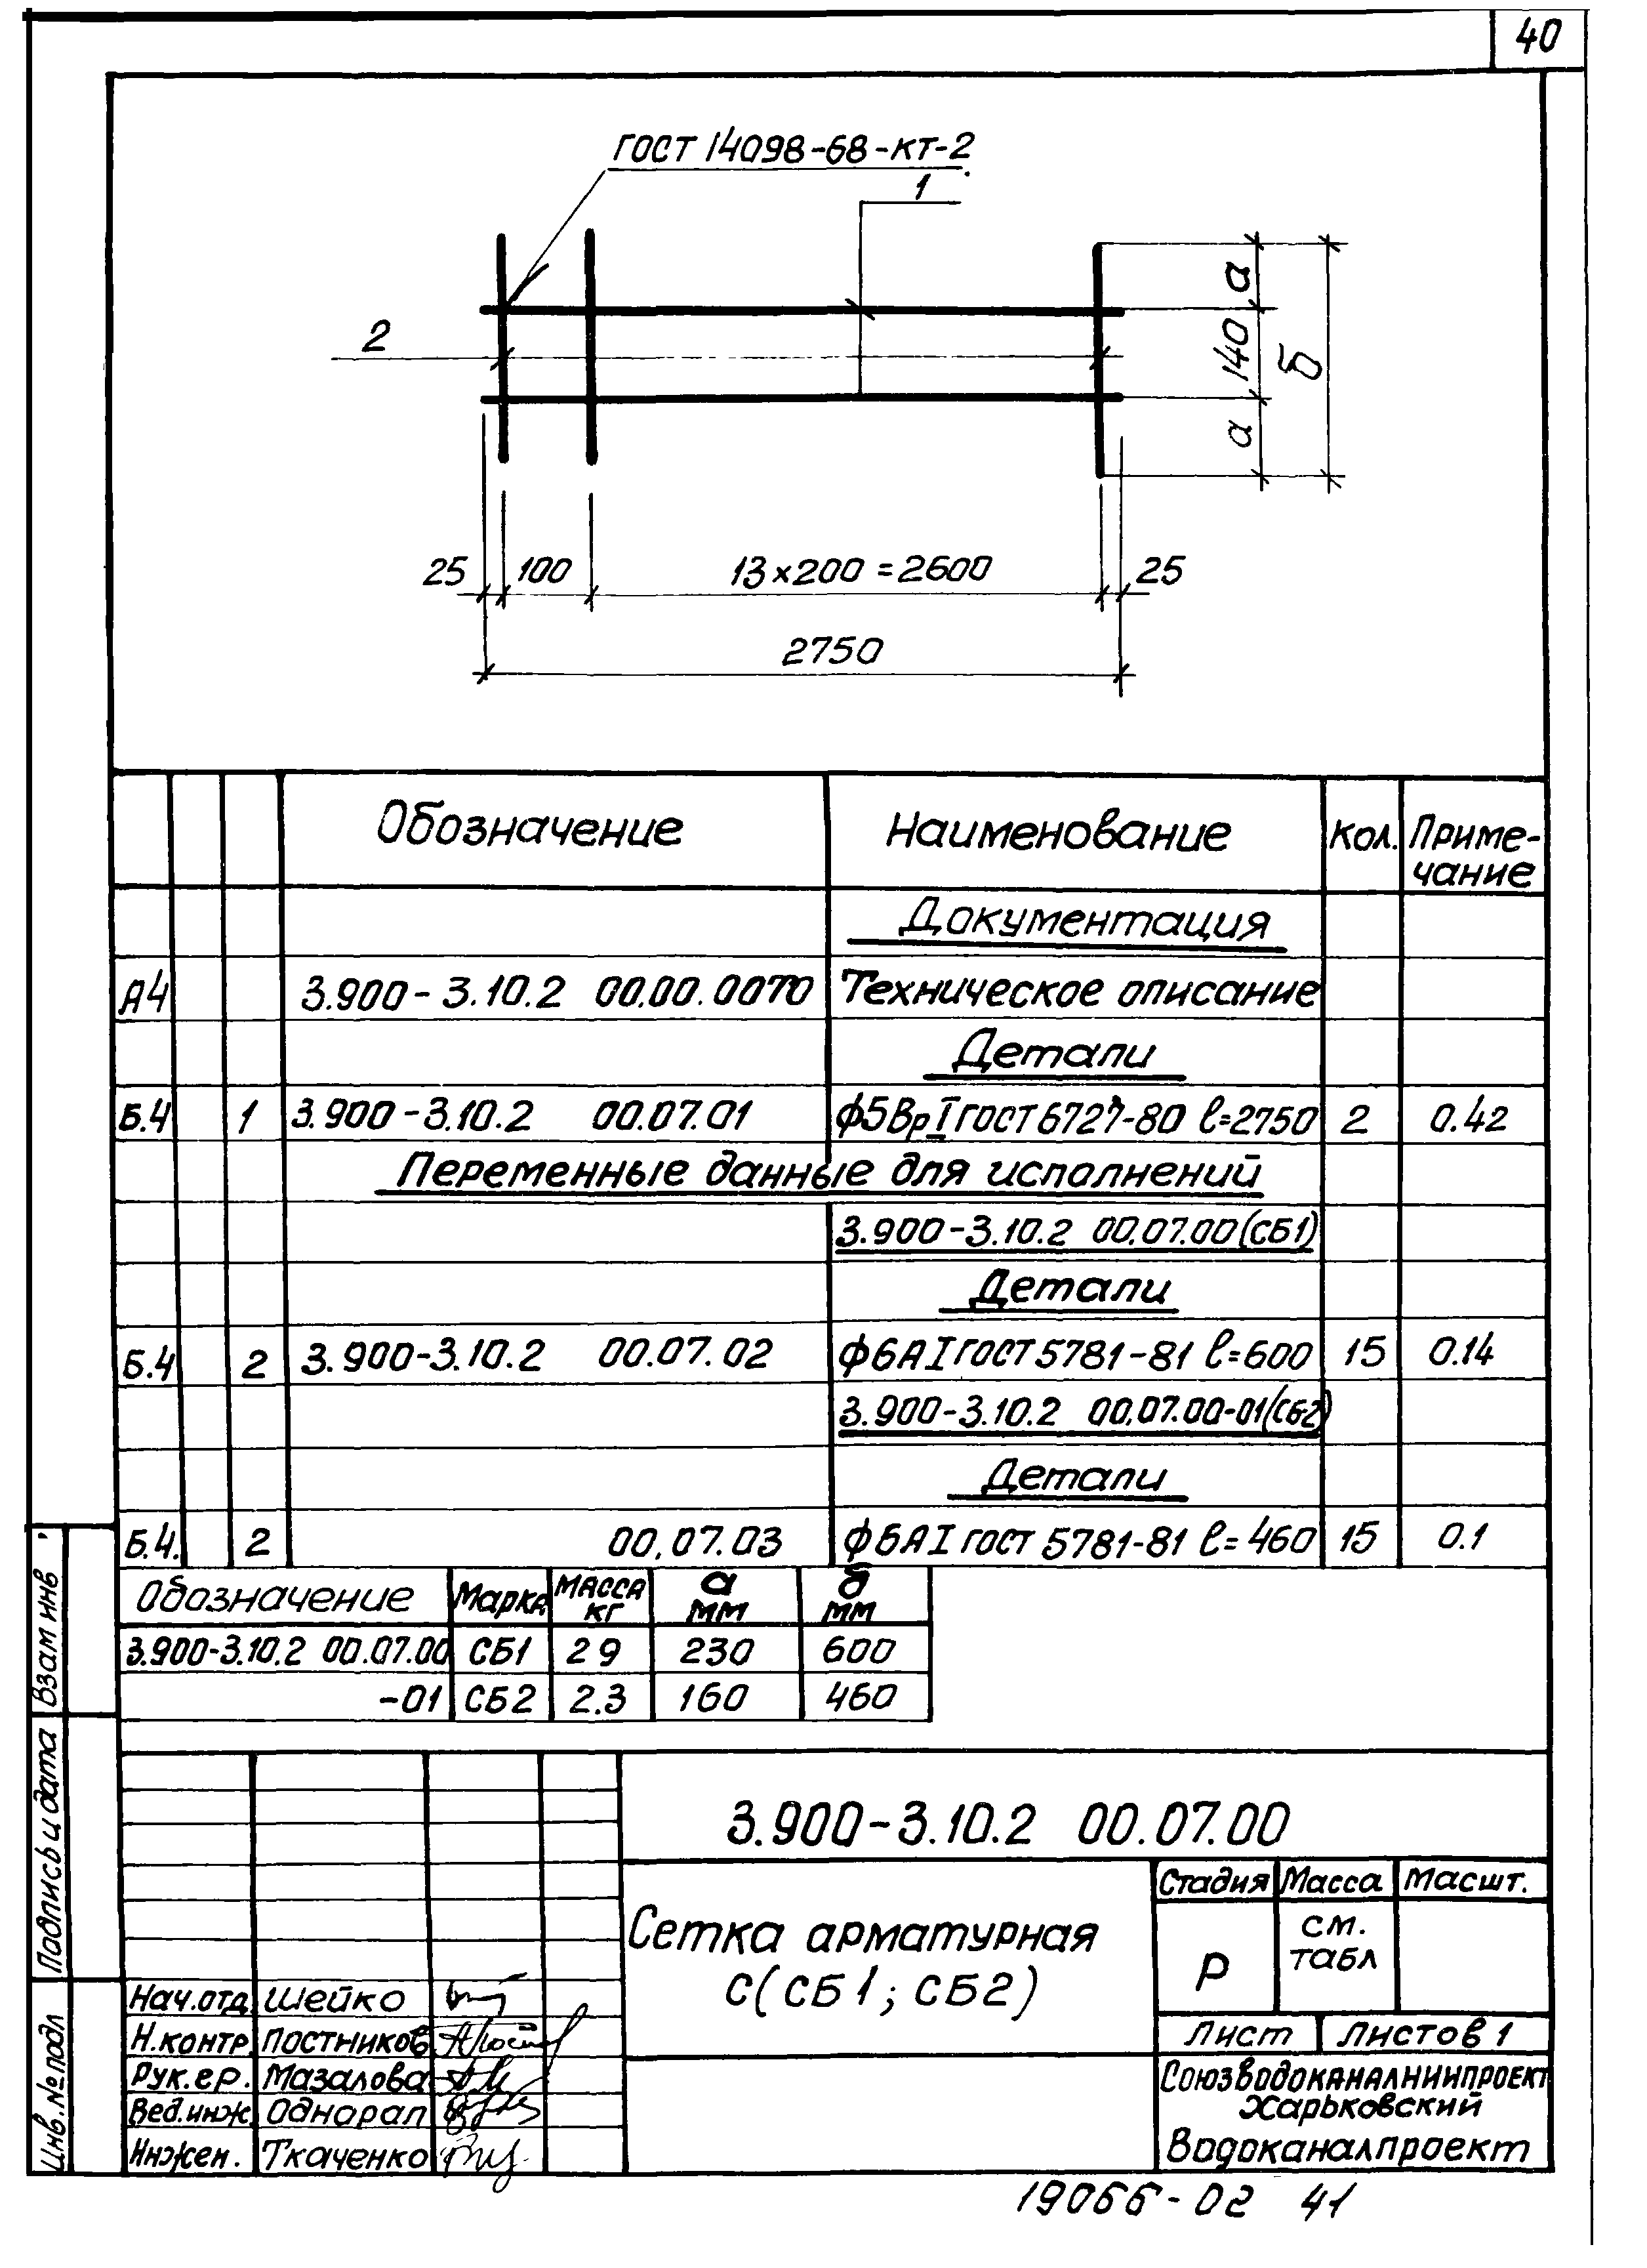 40
ГОСТ 14098-68-КТ-2
1
2
а
140
а
б
25
100
13×200=2600
25
2750
Обозначение
Наименование
Кол.
Приме-
чание
Документация
А4 3.900-3.10.2 00.00.00ТО Техническое описание
Детали
Б.4 1 3.900-3.10.2 00.07.01 ф5ВрI ГОСТ 6727-80 ℓ=2750 2 0.42
Переменные данные для исполнений
3.900-3.10.2 00.07.00 (СБ1)
Детали
Б.4 2 3.900-3.10.2 00.07.02 ф6АI ГОСТ 5781-81 ℓ=600 15 0.14
3.900-3.10.2 00.07.00-01(СБ2)
Детали
Б.4. 2 00.07.03 ф6АI ГОСТ 5781-81 ℓ=460 15 0.1
Обозначение Марка Масса кг а мм б мм
3.900-3.10.2 00.07.00 СБ1 2 9 230 600
-01 СБ2 2.3 160 460
3.900-3.10.2 00.07.00
Сетка арматурная
С(СБ1; СБ2)
Стадия Масса Масшт.
Р
см.
табл
Лист
Листов 1
Союзводоканалниипроект
Харьковский
Водоканалпроект
Нач.отд. Шейко
Н.контр. Постников
Рук.гр. Мазалова
Вед.инж. Однорал
Инжен. Ткаченко
Взам инв
Подпись и дата
Инв.№подл
19066-02 41